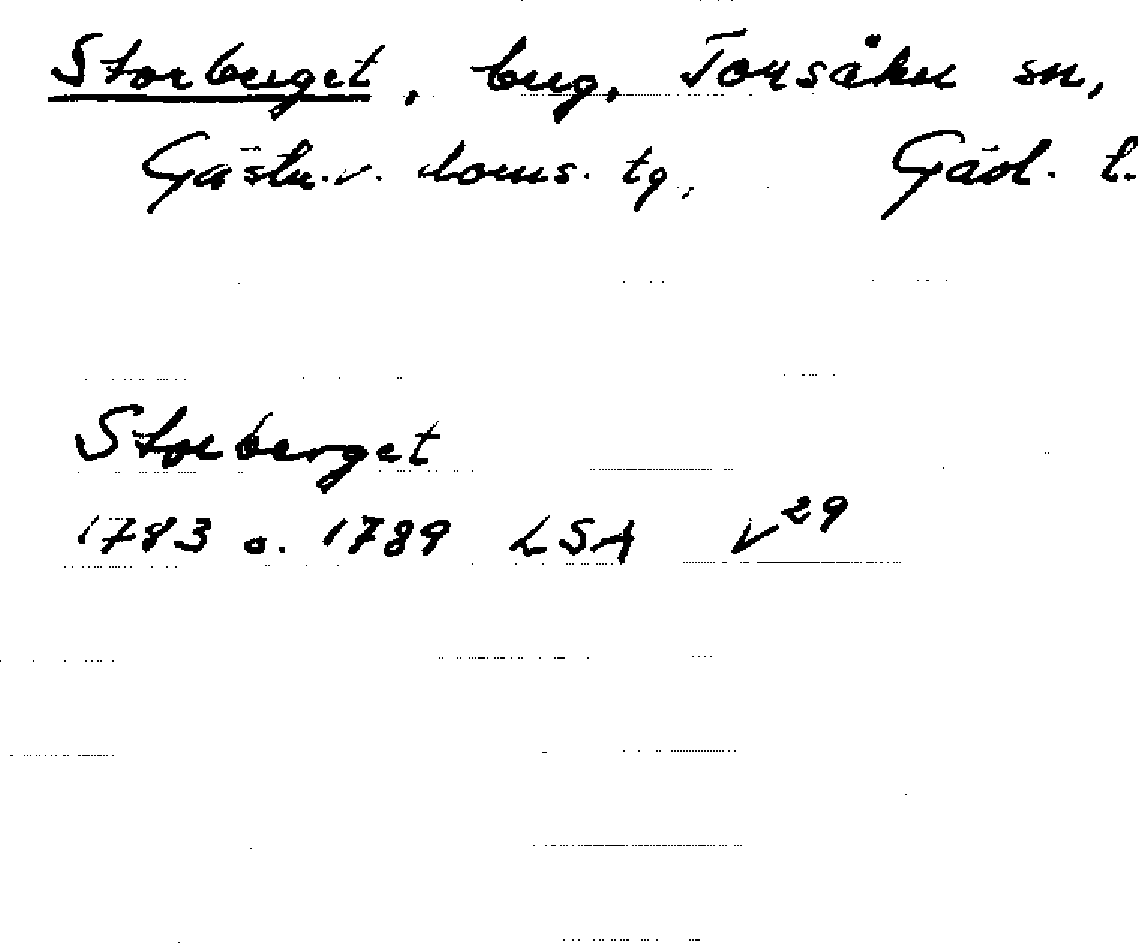 Storberget, berg, Torsåker sn,
Gästr. v. doms. tg, Gävl. l.
Storberget
1783 o. 1789 LSA V29